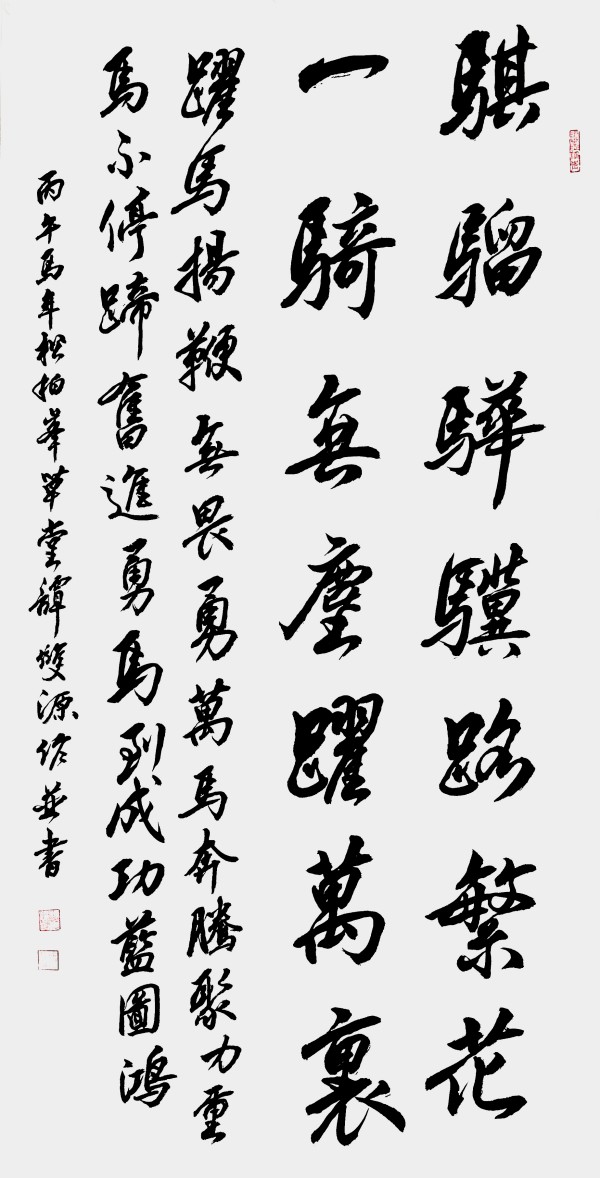 騏騮驊驥路繁花
一騎無塵躍萬裏
躍馬揚鞭無畏勇萬馬奔騰聚力重
馬不停蹄奮進勇馬到成功藍圖鴻
丙午馬年松柏峯草堂譚雙源作並書